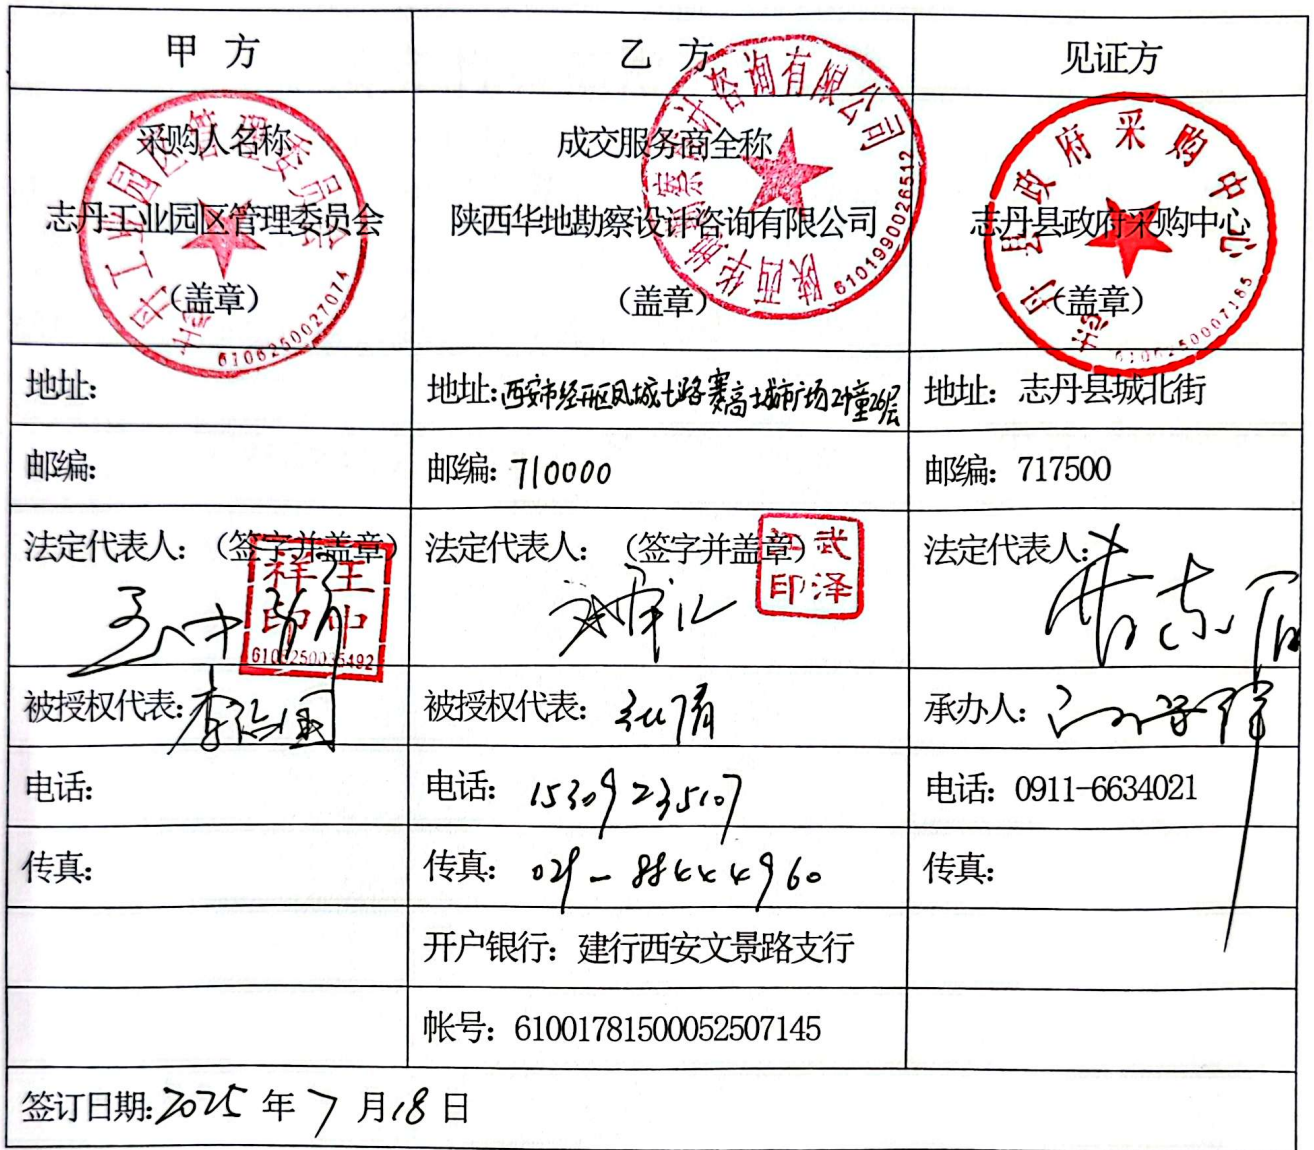 甲 方
乙 方
见证方
采购人名称
志丹工业园区管理委员会
(盖章)
成交服务商全称
陕西华地勘察设计咨询有限公司
(盖章)
志丹县政府采购中心
(盖章)
志丹工业园区管理委员会
陕西华地勘察设计咨询有限公司
6101990026512
志丹县政府采购中心
地址:
地址:西安市经开区凤城七路赛高城市广场2幢26层
地址: 志丹县城北街
邮编:
邮编: 710000
邮编: 717500
法定代表人: (签字并盖章)
法定代表人: (签字并盖章)
武泽
印
法定代表人:
被授权代表:
被授权代表:
承办人:
电话:
电话: 15309235107
电话: 0911-6634021
传真:
传真: 029-88444960
传真:
开户银行: 建行西安文景路支行
帐号: 61001781500052507145
签订日期:2025 年 7 月 18 日